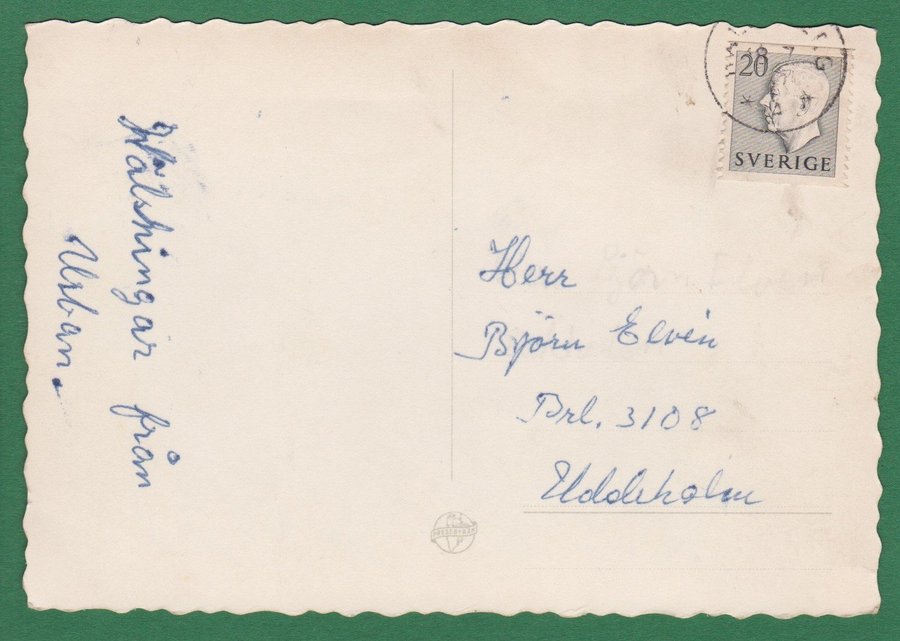 Hälsningar från
Urban.
20
SVERIGE
Herr
Björn Elvén
Brl. 3108
Uddeholm